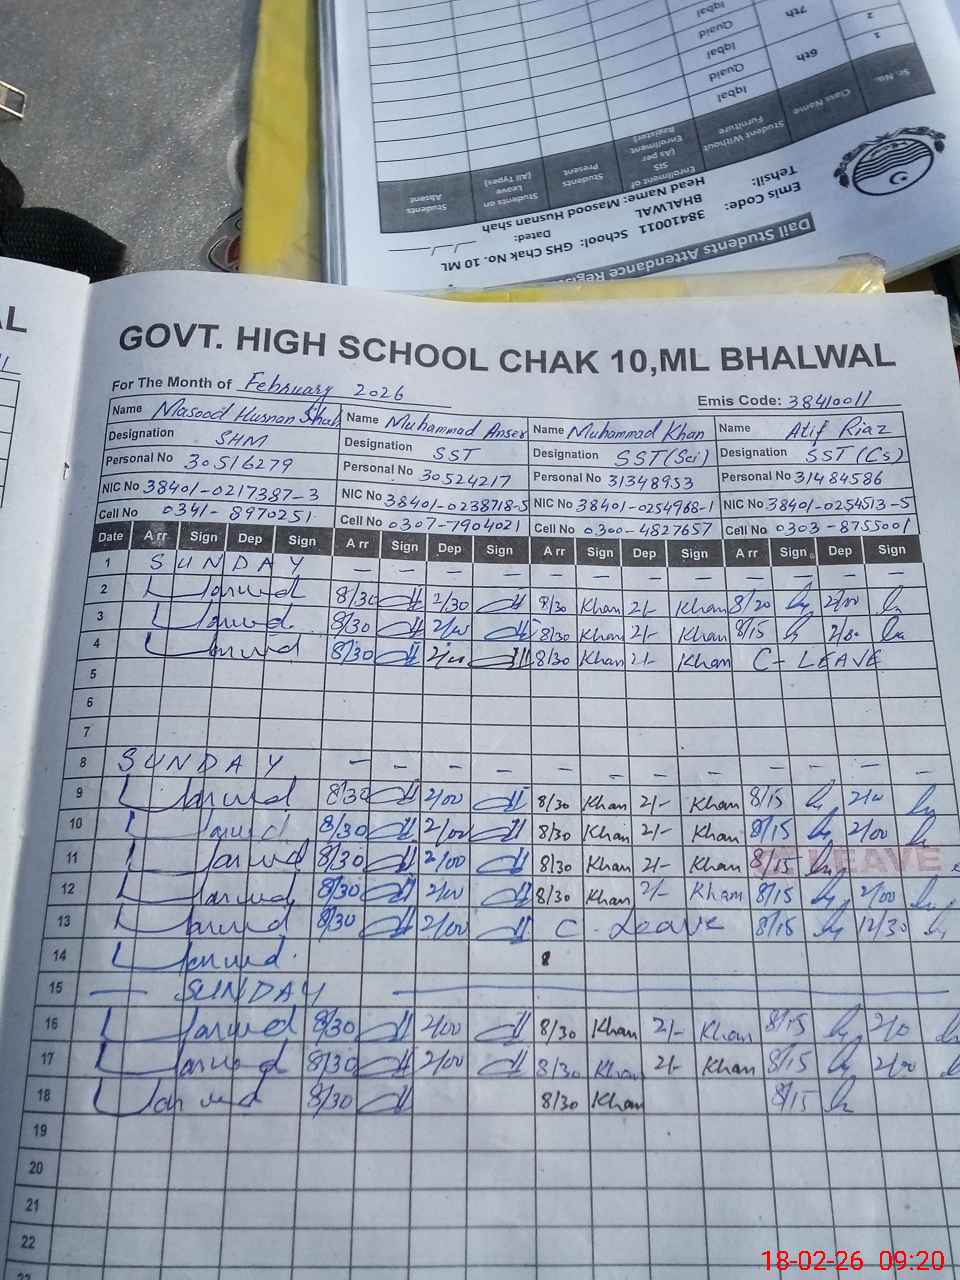 Dail Students Attendance Regis
Emis Code: 38410011 School: GHS Chak No. 10 ML
Tehsil: BHALWAL Dated:
Head Name: Masood Husnan shah
Sr. No. Class Name Student Without Furniture Enrollment of SIS (As per Enrollment Register) Students Present Students on Leave (All Types) Students Absent
1 6th Iqbal
2 Quaid
7th Iqbal
Quaid
Iqbal
AL
GOVT. HIGH SCHOOL CHAK 10,ML BHALWAL
For The Month of February 2026
Emis Code: 38410011
Name Masood Husnan Shah Name Muhammad Anser Name Muhammad Khan Name Atif Riaz
Designation SHM Designation SST Designation SST(Sci) Designation SST (Cs)
Personal No 30516279 Personal No 30524217 Personal No 31348953 Personal No 31484586
NIC No 38401-0217387-3 NIC No 38401-0238718-5 NIC No 38401-0254968-1 NIC No 38401-0254513-5
Cell No 0341-8970251 Cell No 0307-7904021 Cell No 0300-4827657 Cell No 0303-8755001
Date Arr Sign Dep Sign Arr Sign Dep Sign Arr Sign Dep Sign Arr Sign Dep Sign
1 SUNDAY - - - - - - - - - - - -
2 8/30 2/30 8/30 Khan 2/- Khan 8/20 2/00
3 8/30 8/30 Khan 2/- Khan 8/15
4 8/30 8/30 Khan 2/- Khan C-LEAVE
5
6
7
8 SUNDAY - - - - - - - - - - - -
9 8/30 2/00 8/30 Khan 2/- Khan 8/15
10 8/30 2/00 8/30 Khan 2/- Khan 8/15 2/00
11 8/30 2/00 8/30 Khan 2/- Khan 8/15 LEAVE
12 8/30 2/00 8/30 Khan 2/- Kham 8/15 2/00
13 8/30 2/00 C-Leave 8/15 12/30
14 8
15 — SUNDAY —
16 8/30 2/00 8/30 Khan 2/- Khan 8/15
17 8/30 2/00 8/30 Khan 2/- Khan 8/15 2/00
18 8/30 8/30 Khan 8/15
19
20
21
22
18-02-26 09:20